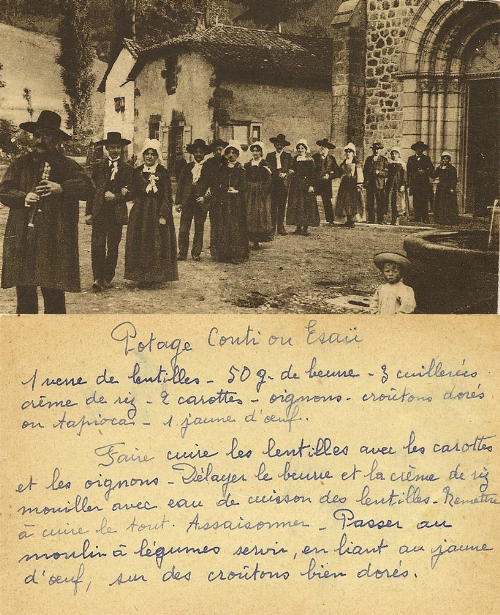 Potage Conti ou Esaü
1 verre de lentilles - 50 g. de beurre - 3 cuillerées
crème de riz - 2 carottes - oignons - croûtons dorés
ou tapioca - 1 jaune d'œuf.
Faire cuire les lentilles avec les carottes
et les oignons - Délayer le beurre et la crème de riz
mouiller avec eau de cuisson des lentilles - Remettre
à cuire le tout. Assaisonner - Passer au
moulin à légumes servir, en liant au jaune
d'œuf, sur des croûtons bien dorés.